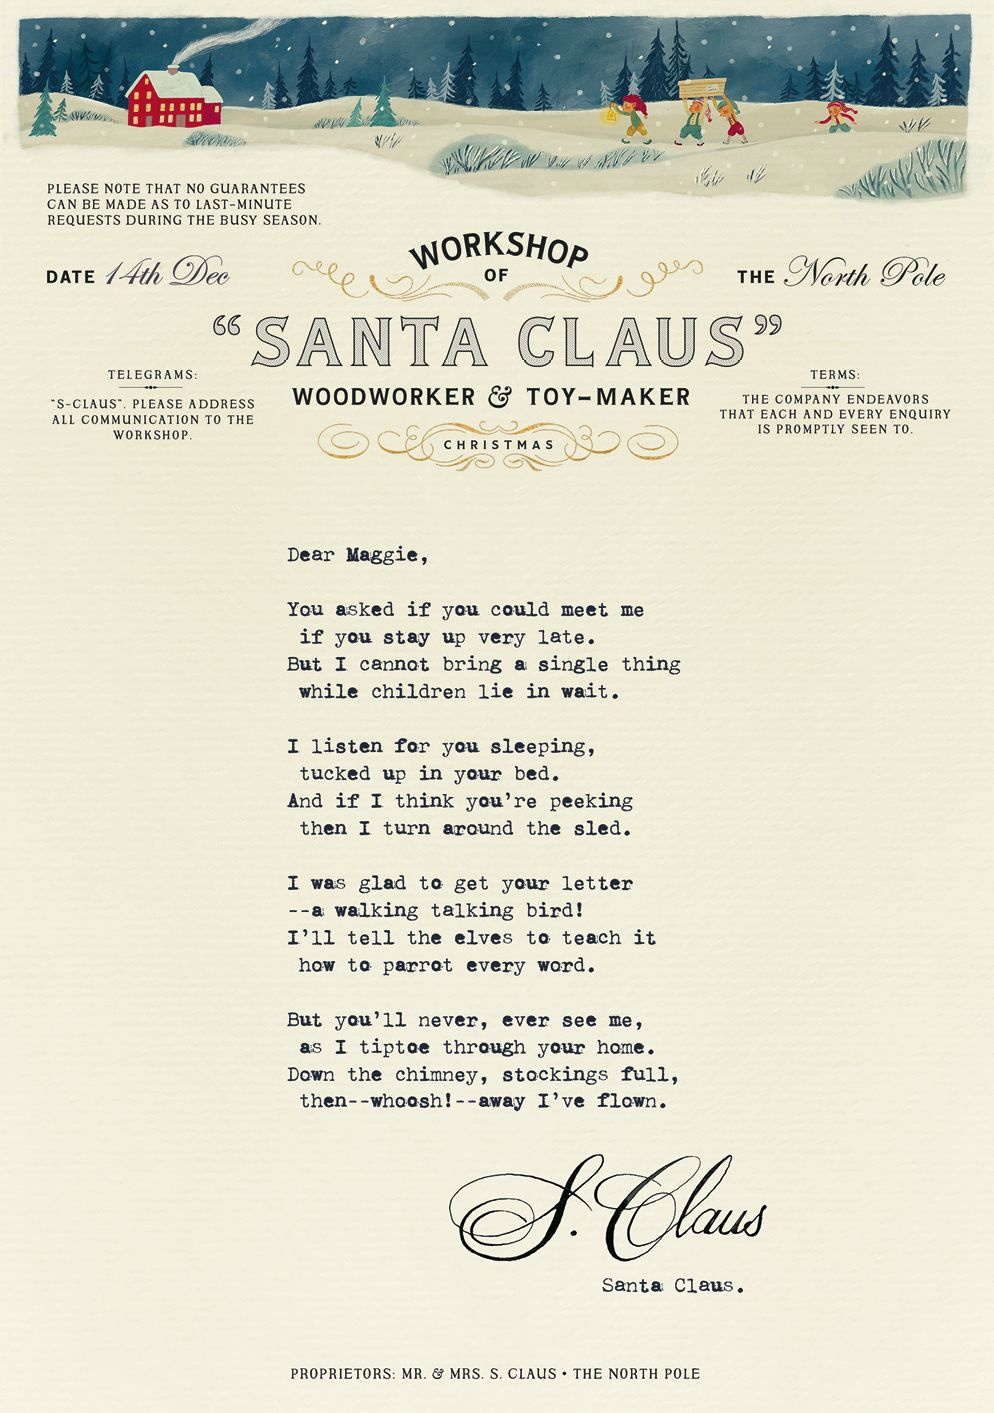 PLEASE NOTE THAT NO GUARANTEES
CAN BE MADE AS TO LAST-MINUTE
REQUESTS DURING THE BUSY SEASON.
DATE 14th Dec
WORKSHOP
OF
THE North Pole
“SANTA CLAUS”
WOODWORKER & TOY-MAKER
CHRISTMAS
TELEGRAMS:
"S-CLAUS". PLEASE ADDRESS
ALL COMMUNICATION TO THE
WORKSHOP.
TERMS:
THE COMPANY ENDEAVORS
THAT EACH AND EVERY ENQUIRY
IS PROMPTLY SEEN TO.
Dear Maggie,
You asked if you could meet me
if you stay up very late.
But I cannot bring a single thing
while children lie in wait.
I listen for you sleeping,
tucked up in your bed.
And if I think you're peeking
then I turn around the sled.
I was glad to get your letter
--a walking talking bird!
I'll tell the elves to teach it
how to parrot every word.
But you'll never, ever see me,
as I tiptoe through your home.
Down the chimney, stockings full,
then--whoosh!--away I've flown.
S. Claus
Santa Claus.
PROPRIETORS: MR. & MRS. S. CLAUS • THE NORTH POLE